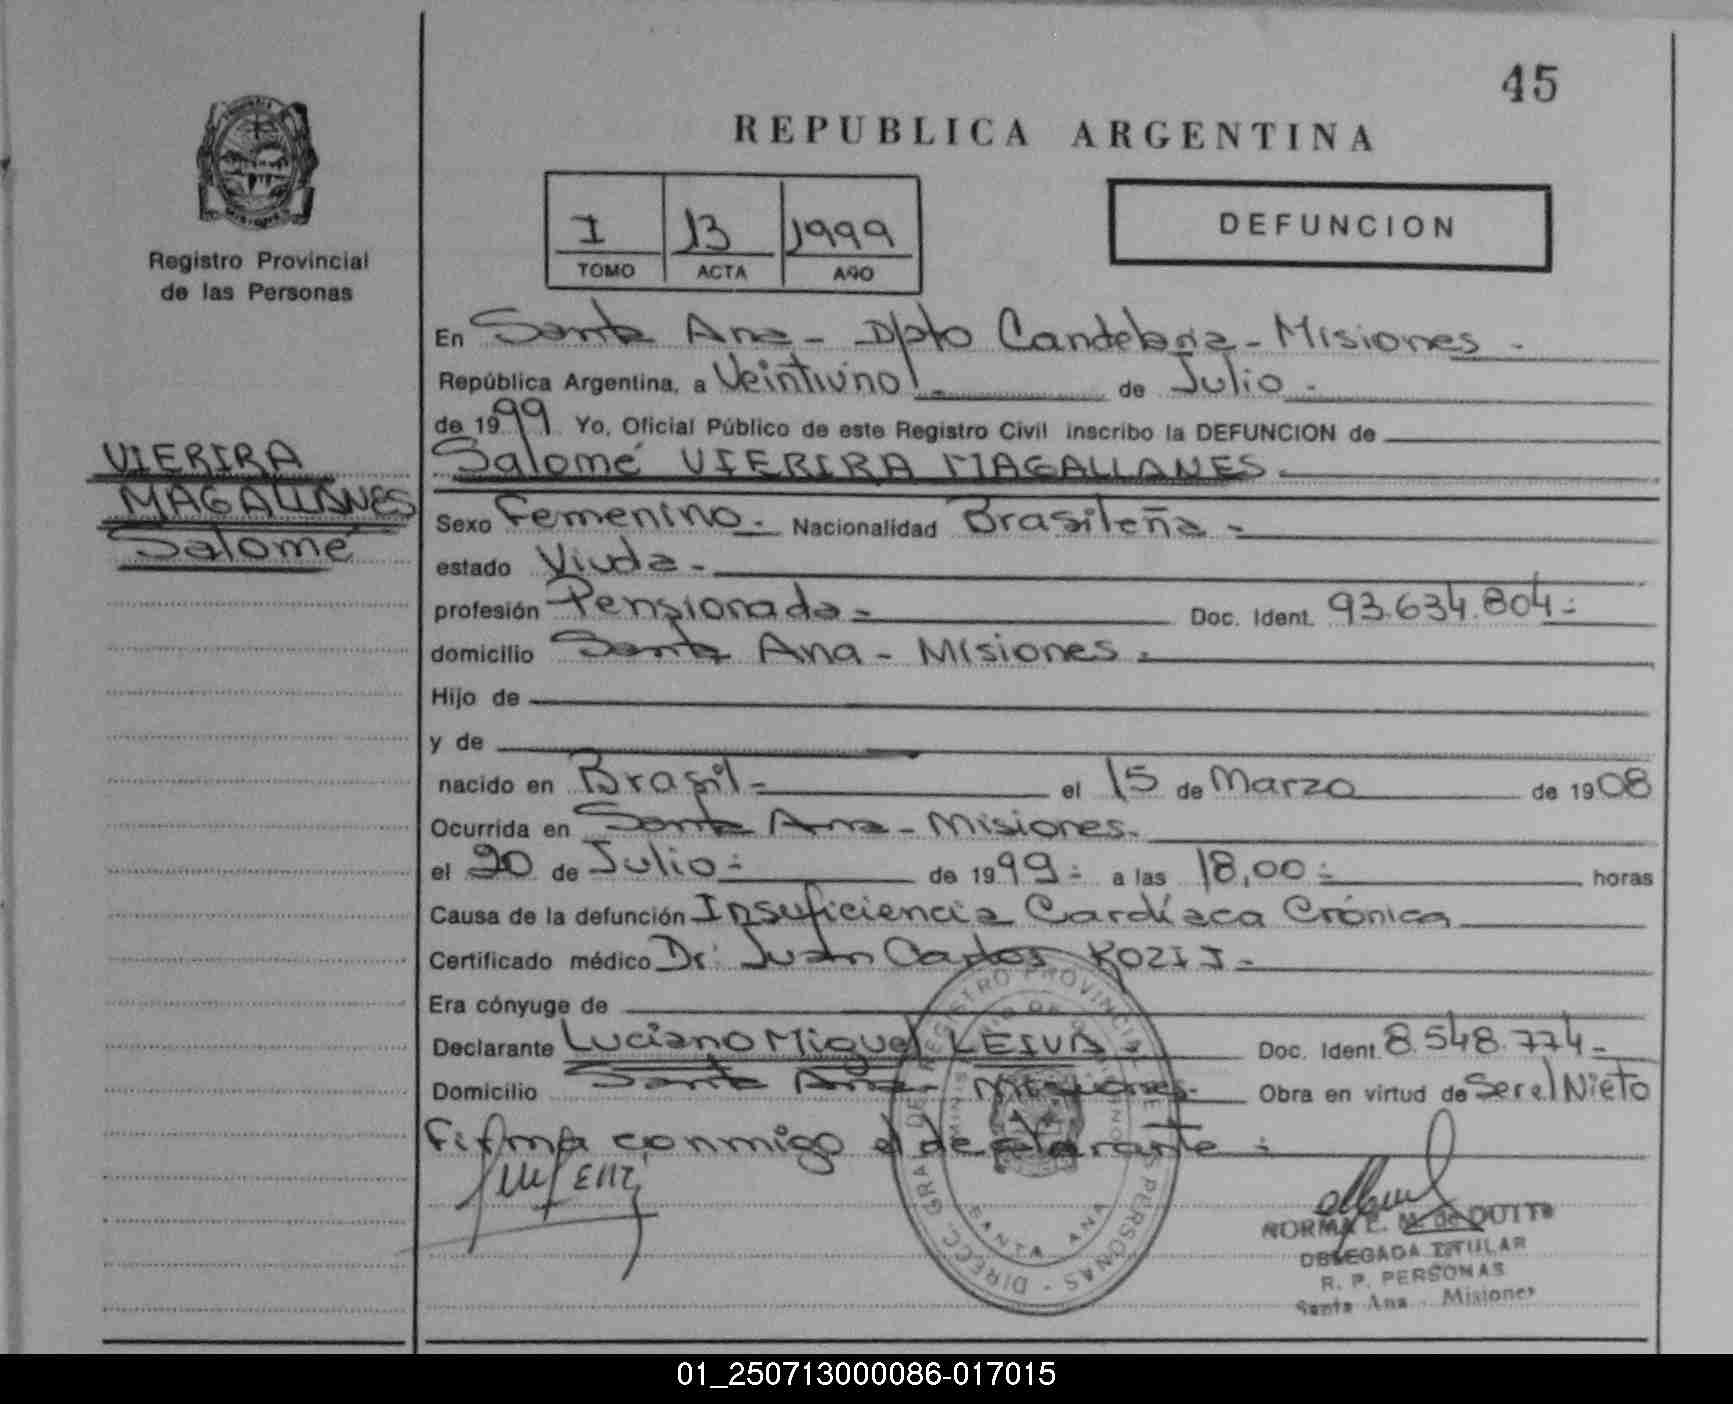 45
REPUBLICA ARGENTINA
I 13 1999
TOMO ACTA AÑO
DEFUNCION
Registro Provincial
de las Personas
VIERIRA
MAGALLANES
Salomé
En Santa Ana - Dpto Candelaria - Misiones -
República Argentina, a Veintiuno de Julio -
de 1999 Yo, Oficial Público de este Registro Civil inscribo la DEFUNCION de
Salomé VIERIRA MAGALLANES -
Sexo Femenino - Nacionalidad Brasileña -
estado Viuda -
profesión Pensionada - Doc. Ident. 93.634.804 -
domicilio Santa Ana - Misiones -
Hijo de
y de
nacido en Brasil - el 15 de Marzo de 1908
Ocurrida en Santa Ana - Misiones -
el 20 de Julio - de 1999 - a las 18,00 - horas
Causa de la defunción Insuficiencia Cardíaca Crónica
Certificado médico Dr: Juan Carlos KOZIJ -
Era cónyuge de
Declarante Luciano Miguel LEIVA - Doc. Ident. 8.548.774 -
Domicilio Santa Ana - Misiones - Obra en virtud de Ser el Nieto
Firma conmigo el declarante -
DIRECC. GRAL. DE REGISTRO PROVINCIAL DE LAS PERSONAS
SANTA ANA
NORMA E. M. de OUTTO
DELEGADA TITULAR
R. P. PERSONAS
Santa Ana - Misiones
01_250713000086-017015